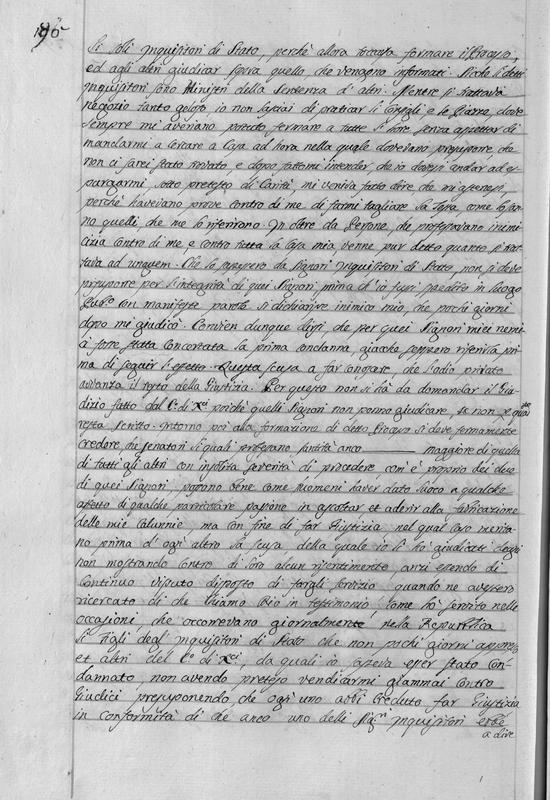 li soli Inquisitori di Stato, perchè allora toccava formare il Processo,
ed agli altri giudicar sopra quello, che vengono informati. Siche li detti
Inquisitori sono Ministri della Sentenza d'altri. Mentre si trattava
negozio tanto geloso io non lasciai di praticar li Consigli e le Piazze, dove
sempre mi averiano potuto fermare a tutte l'hore, senza aspettar di
mandarmi a levare a Casa ad hora nella quale dovevano presupore che
non ci sarei stato trovato, e dopo fattomi intender, che io dovessi andar ad es-
purgarmi, sotto pretesto di Carità, mi veniva fatto dire che mi astenessi,
perchè havevano prove contro di me di farmi tagliare la Testa, come lo san-
no quelli che me lo riferirono. In oltre da Persone, che professavano inimi-
cizia contro di me, e contro tutta la Casa mia, venne pur detto quanto si trat-
tava ad unguem. Che lo sapessero da Signori Inquisitori di Stato, non si deve
presupore per l'integrità di quei Signori, prima ch'io fussi
con manifeste parole si dichiarì inimico mio, che pochi giorni
dopo mi giudicò. Convien dunque dirsi, che per quei Signori miei nemi-
ci fosse stata concertata la prima condanna, giacchè seppero riferirla pri-
ma di seguir l'effetto. Questa scusa a far conoscere, che l'odio privato
avvanza il retto della Giustizia. Per questo non si hà da domandar il Giu-
dizio fatto dal C.º di X.ci poichè quelli Signori non ponno giudicare, se non per quan.to
resta scritto. Intorno poi alla formazione di detto Processo si deve fermamente
credere, che Senatori li quali professano santità anco maggiore di quella
di tutti gli altri con inposita severità di procedere com'è proprio dei due
di quei Signori, possono bene come huomeni haver dato luoco a qualche
affetto di qualche particolare passione in ascoltar et aderir alla fabricazione
delle mie calunnie, ma con fine di far Giustizia, nel qual caso merita-
no prima d'ogni altro la scusa della quale io li hò giudicati degni
non mostrando contro di loro alcun risentimento anzi essendo di
continuo vissuto disposto di fargli servizio quando ne avessero
ricercato di che chiamo Dio in testimonio. Come hò servito nelle
occasioni, che occorrevano giornalmente nella Republica
li Figli degl'Inquisitori di Stato che non pochi giorni appresso
et altri del C.º di X.ci, da quali io sapeva esser stato con-
dannato, non avendo preteso vendicarmi giammai contro
Giudici, presuponendo, che ogni uno abbi creduto far Giustizia
in conformità di che anco uno delli Sig.ri Inquisitori ebbe
a dire